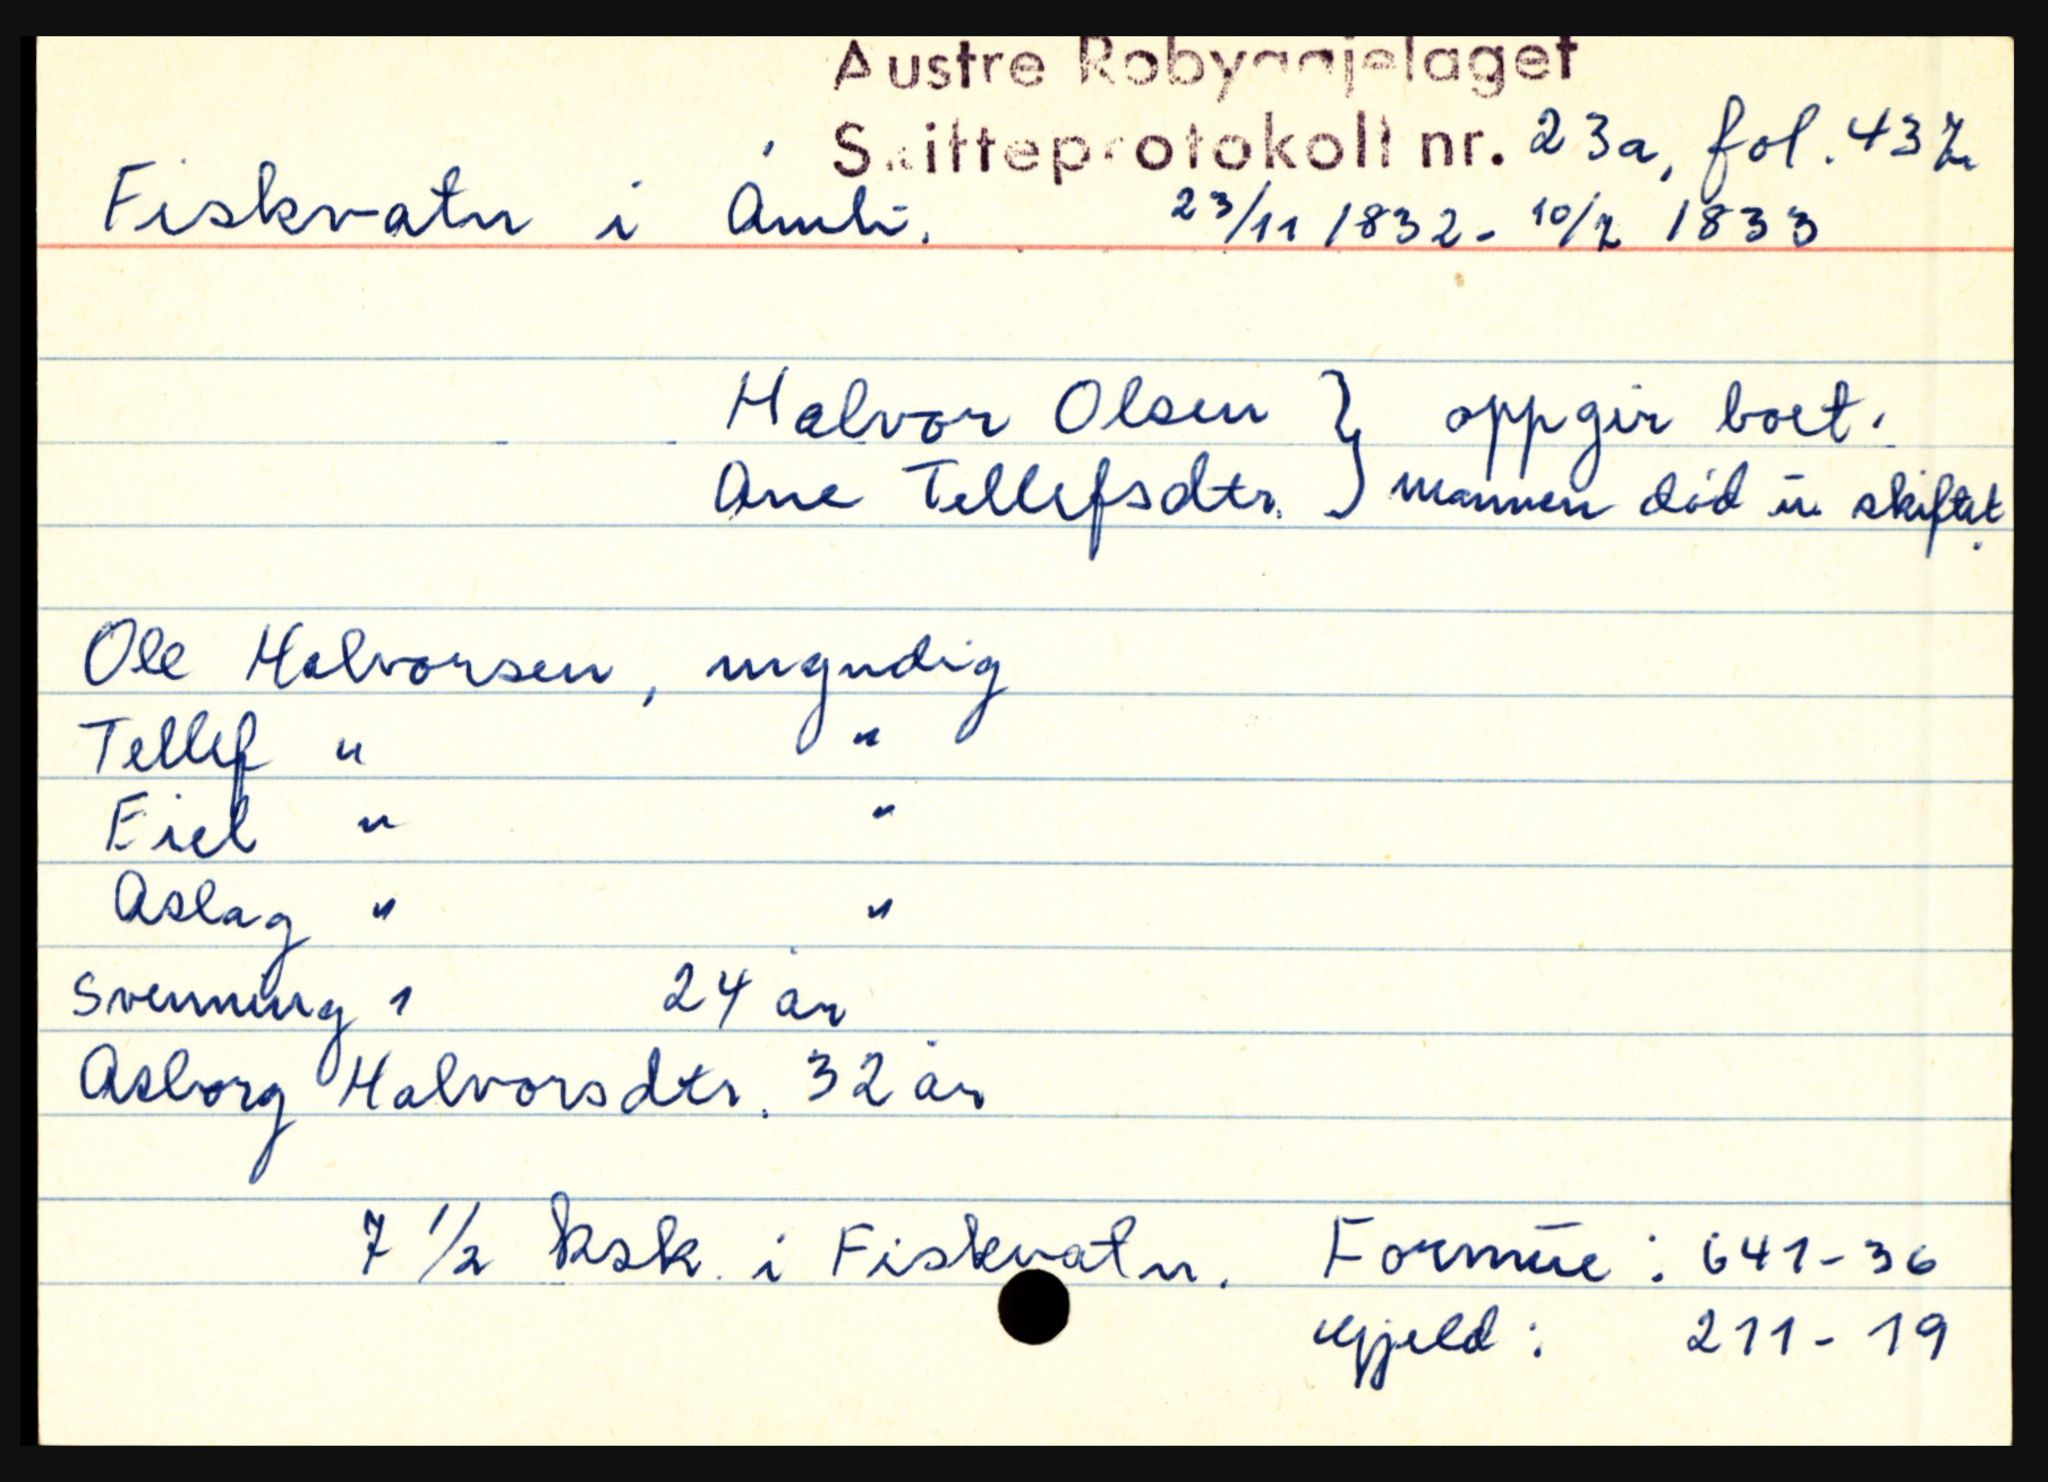 Austre Robyggjelaget
Skifteprotokoll nr. 23a, fol. 437
Fiskvatn i Åmli. 23/11 1832 - 10/7 1833
Halvor Olsen } oppgir boet.
Ane Tellefsdtr. } mannen død u. skiftet.
Ole Halvorsen, myndig
Tellef " "
Eiel " "
Aslag " "
Svenning " 24 år
Asborg Halvorsdtr. 32 år
7 1/2 ksk. i Fiskvatn. Formue: 641-36
Gjeld: 211-19